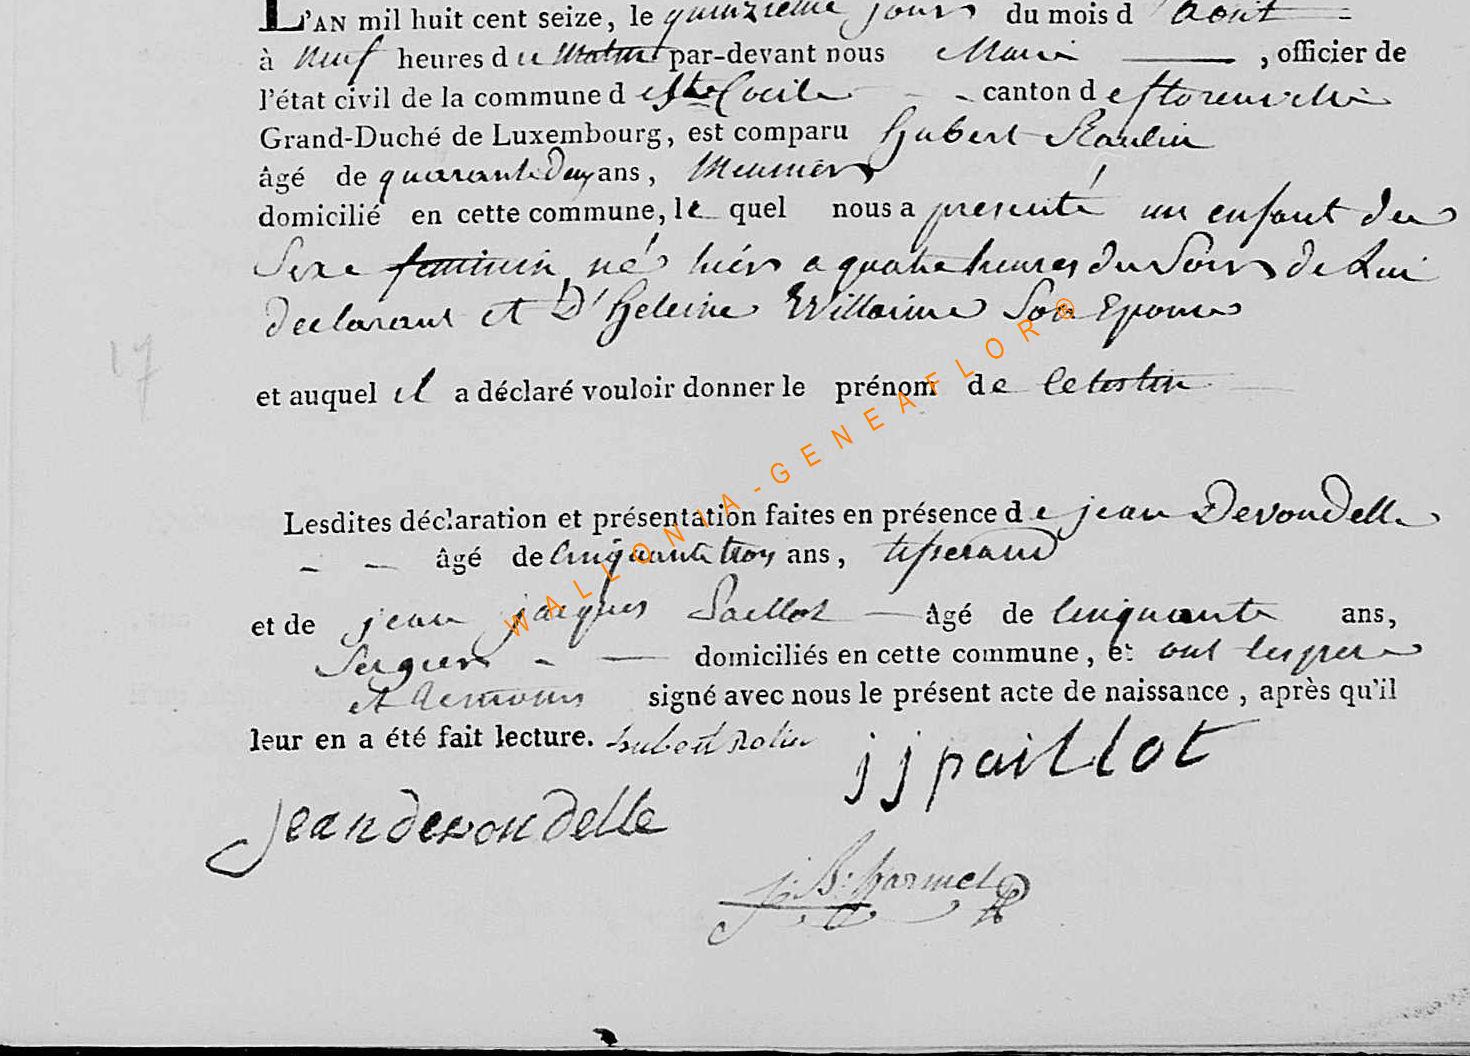 L'AN mil huit cent seize, le quinzieme jours du mois d'Aout
à Neuf heures du Matin par-devant nous Maire, officier de
l'état civil de la commune de Ste Cecile - - canton de florenville
Grand-Duché de Luxembourg, est comparu Hubert Raulin
âgé de quarante Deux ans, Meuniers
domicilié en cette commune, le quel nous a presenté un enfant du
Sexe feminin né hiers a quatre heures du Soirs de Lui
declarant et D'Heleine Willaime Son Epouse
17
et auquel il a déclaré vouloir donner le prénom de Celestin
Lesdites déclaration et présentation faites en présence de jean Devondelle
- - âgé de Cinquante troy ans, tisserand
et de jean jacques Paillot — âgé de Cinquante ans,
- — domiciliés en cette commune, et ont les pere
et temoins signé avec nous le présent acte de naissance, après qu'il
leur en a été fait lecture. hubert Rolin jjpaillot
jean devondelle
WALLONIA-GENEAFLOR©